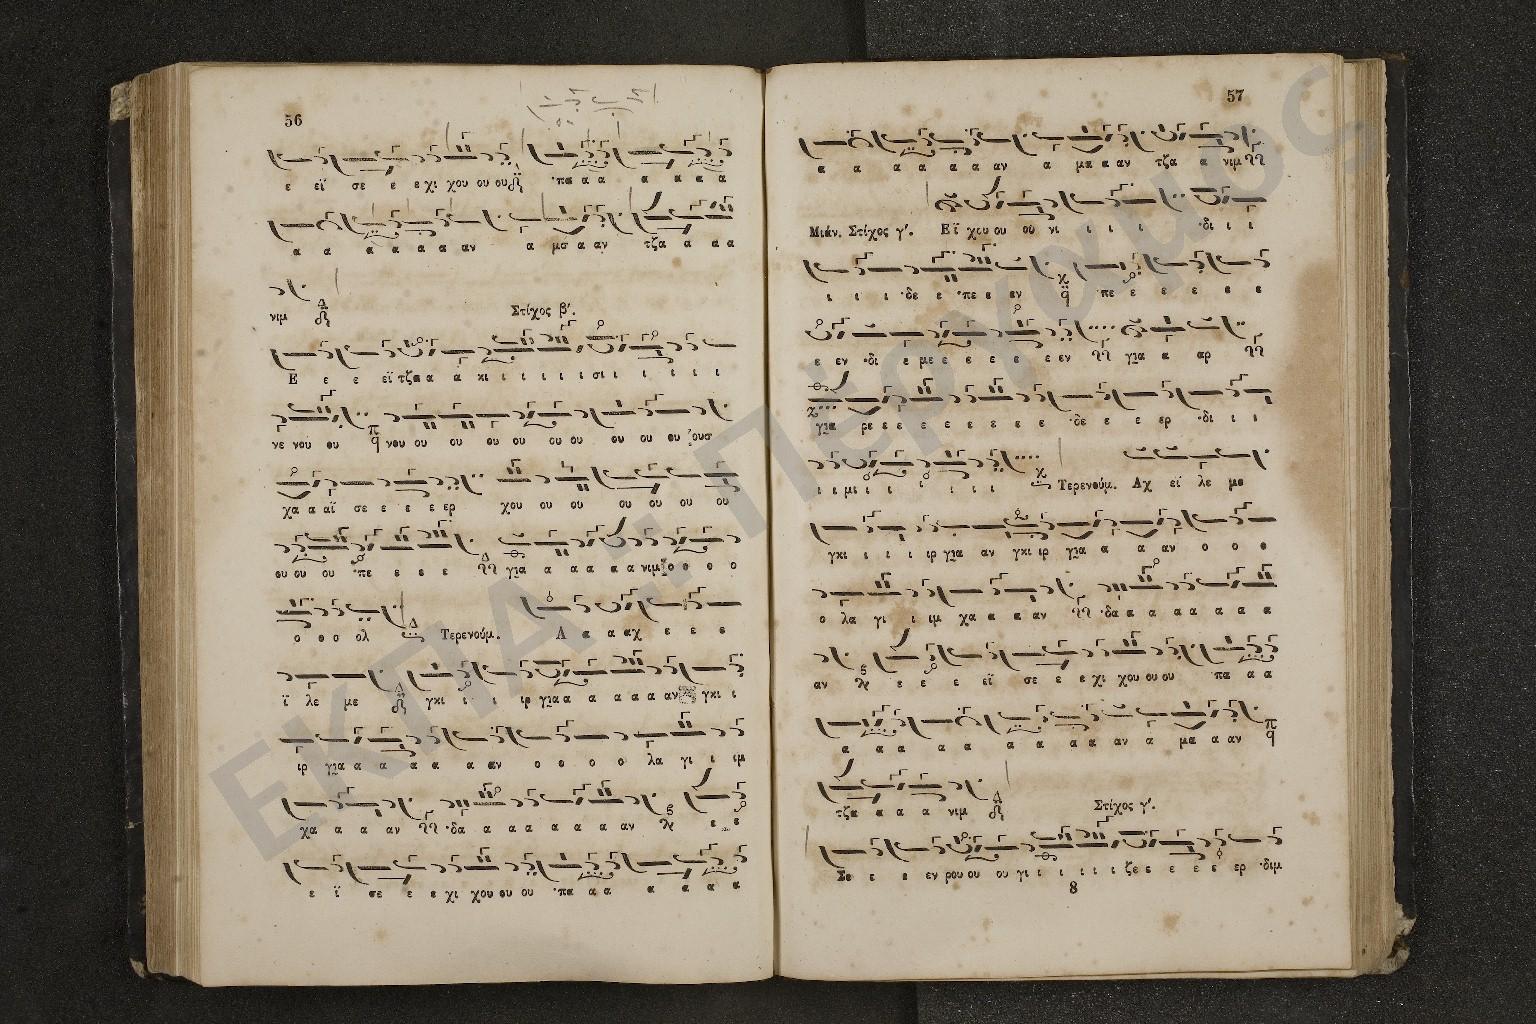 56
ε εϊ σε ε ε χι χου ου ου ·πα α α α α α α
α α α α α α α αν α μα α αν τζα α α α
νιμ Στίχος β′.
Ε ε ε εϊ τζα α α κι ι ι ι ι ι σι ι ι ι ι
νε νου ου νου ου ου ου ου ου ου ου ου ου ους
χα α αϊ σε ε ε ε ερ χου ου ου ου ου ου ου
ου ου ου ·πε ε ε ε για α α α α α νιμ ο ο ο ο
ο ο ο ολ Τερενούμ. Α α α αχ ε ε ε
ϊ λε με γκι ι ι ιρ για α α α α α αν γκι ι
ιρ για α α α α α αν ο ο ο ο λα γι ι ιμ
χα α α α αν ·δα α α α α α α α αν ε ε
ε ϊ σε ε ε χι χου ου ου ·πα α α α α α α
57
α α α α α α αν α μα α αν τζα α νιμ
Μιάν. Στίχος γ′. Ε ϊ χου ου ου νι ι ι ι ·δι ι ι
ι ι ι ·δε ε ·πε ε εν πε ε ε ε ε ε
ε εν ·δι ε με ε ε ε ε ε εν για α αρ
για ρε ε ε ε ε ε ε ε ε ·δε ε ε ερ ·δι ι ι
ι ι μι ι ι ι ι ι ι Τερενούμ. Αχ εϊ λε με
γκι ι ι ι ιρ για αν γκι ιρ για α α αν ο ο ο
ο λα γι ι ιμ χα α α αν ·δα α α α α α α α
αν ε ε ε εϊ σε ε ε χι χου ου ου ·πα α α
α α α α α α α α α αν α μα α αν
τζα α α α νιμ Στίχος γ′.
Σε ε ε εν ρου ου ου γι ι ι ι ι ι ζε ε ε ε ε ερ ·διμ
8
ΕΚΠΑ: Πέργαμος